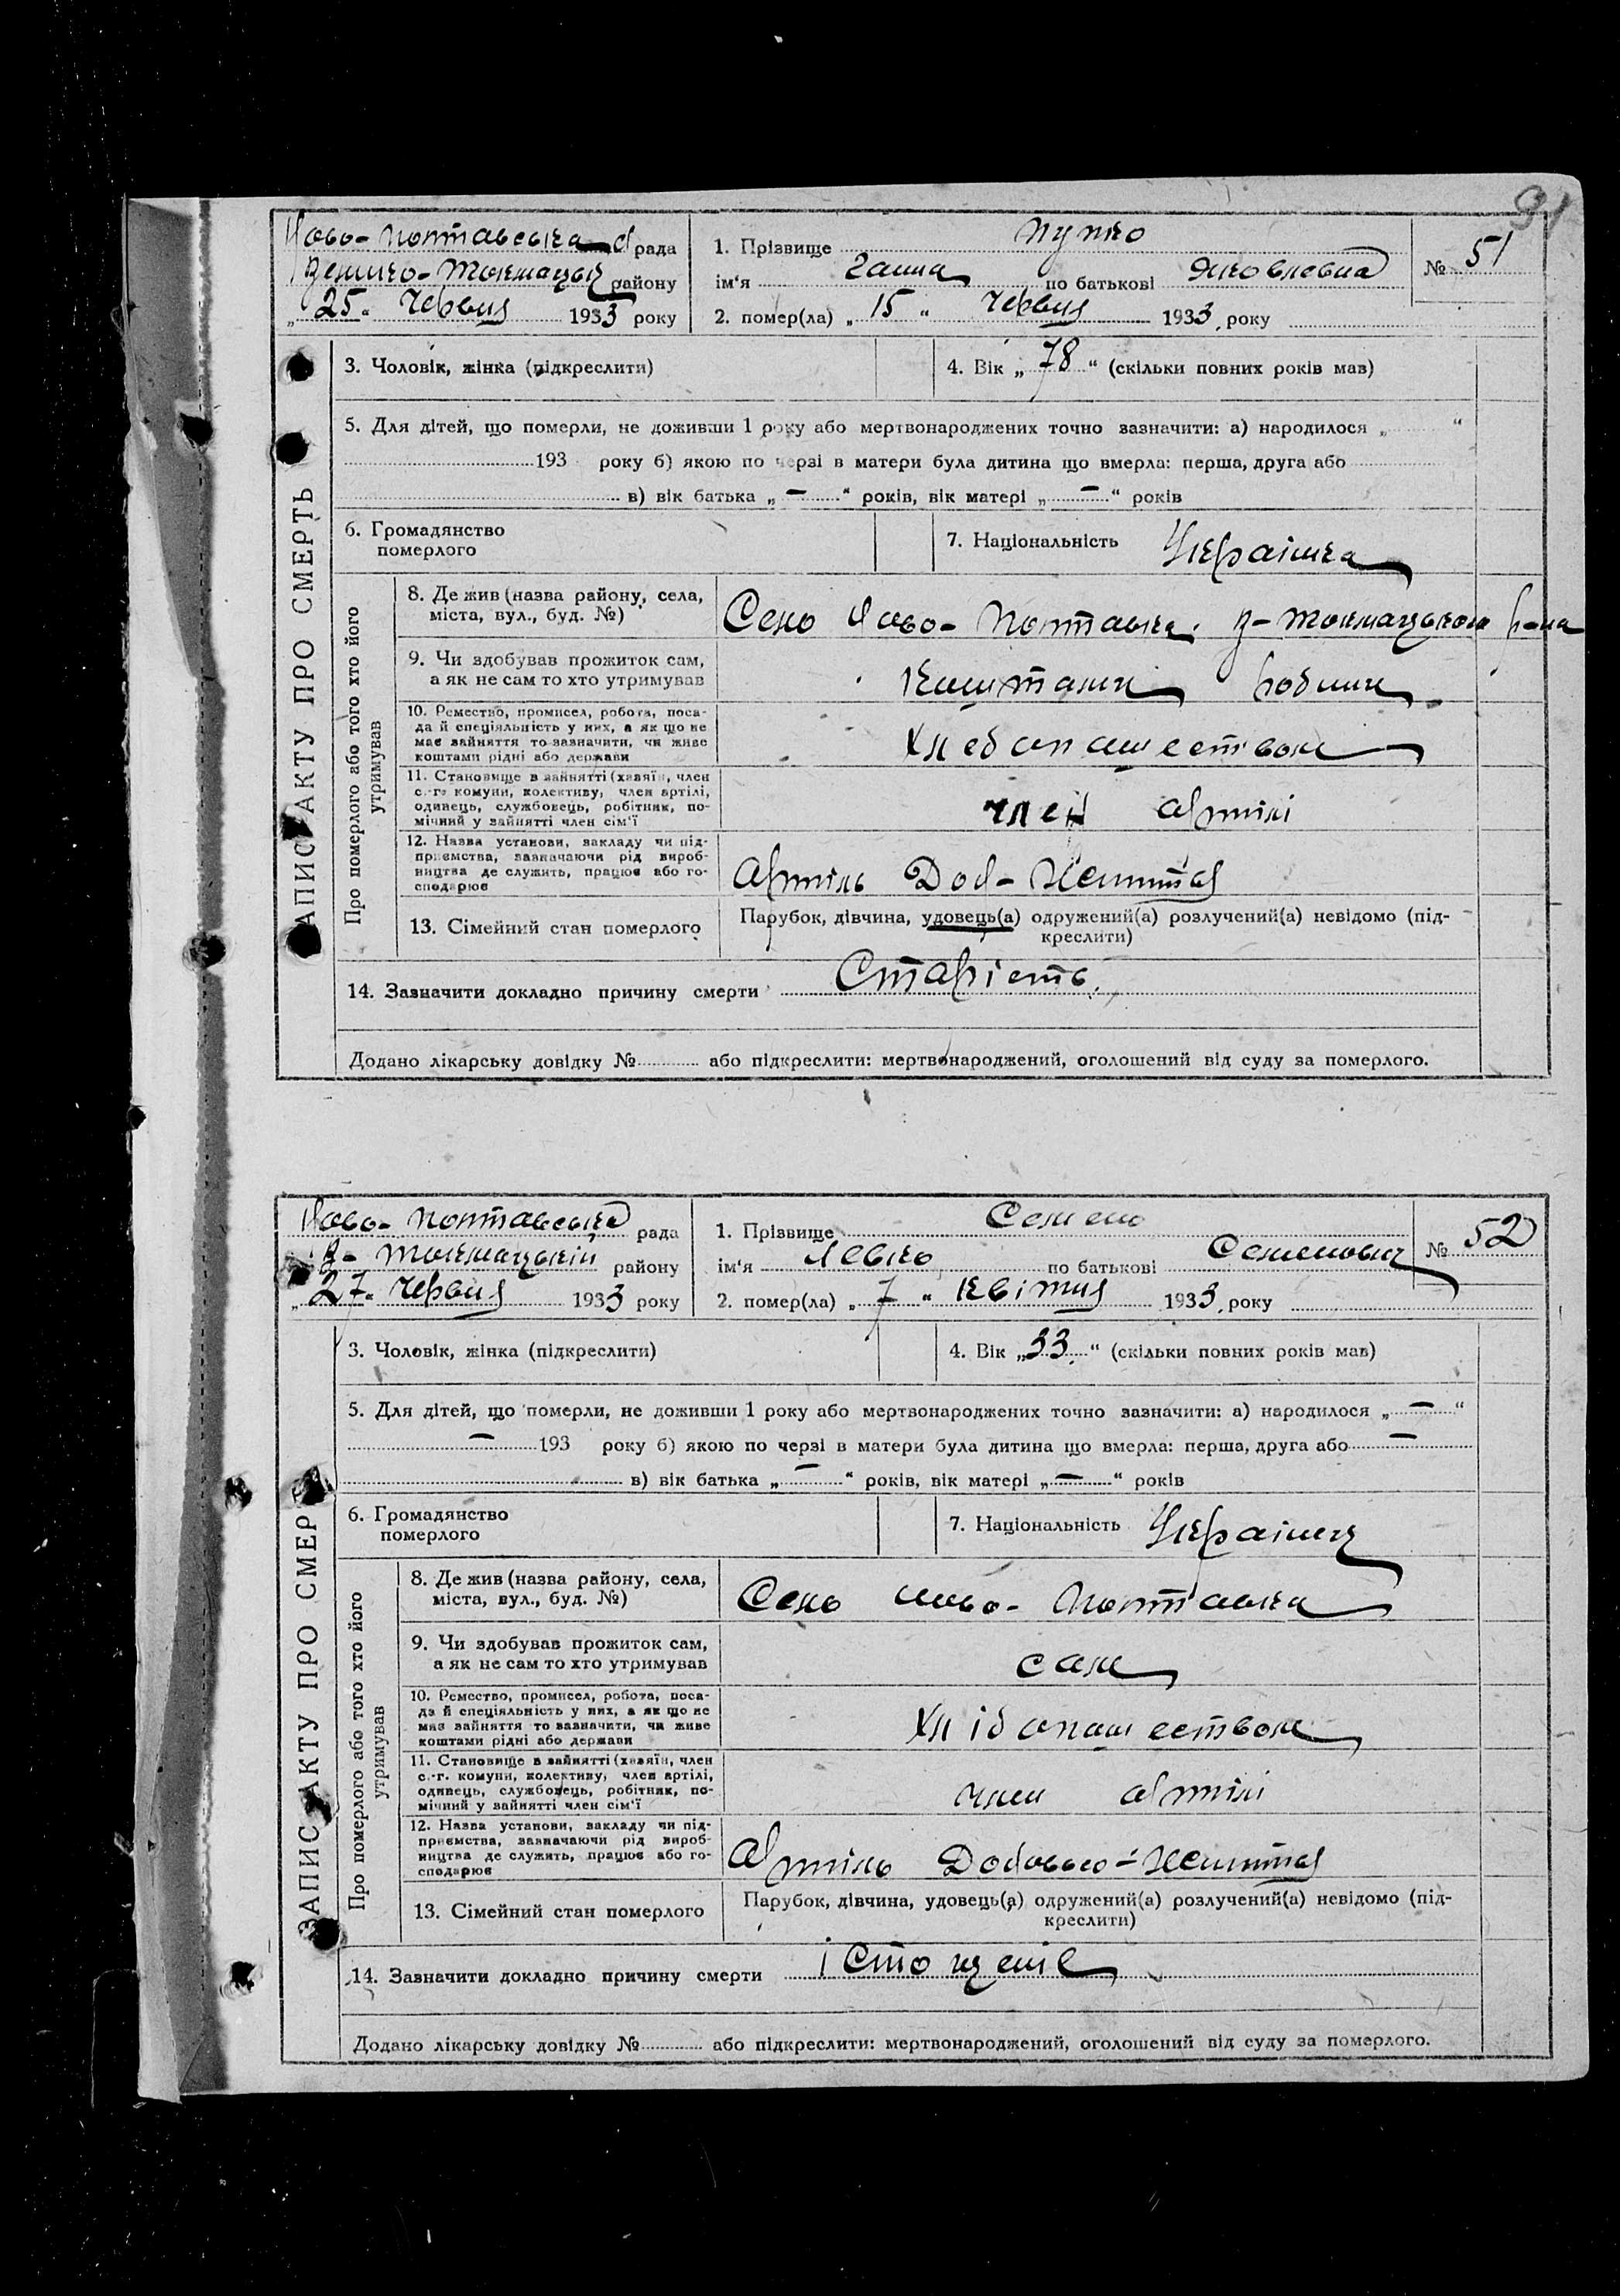 91
Ново-Полтавська рада
Велико-Токмацьк району
„25“ Червня 1933 року
1. Прізвище Пупко
№ 51
ім'я Ганна по батькові Яковлевна
2. помер(ла) „15“ Червня 1933 року
3. Чоловік, жінка (підкреслити)
4. Вік „78“ (скільки повних років мав)
5. Для дітей, що померли, не доживши 1 року або мертвонароджених точно зазначити: а) народилося „ “
193 року б) якою по черзі в матери була дитина що вмерла: перша, друга або
в) вік батька „ — “ років, вік матері „ — “ років
6. Громадянство
померлого
7. Національність Українка
ЗАПИС АКТУ ПРО СМЕРТЬ
Про померлого або того хто його
утримував
8. Де жив (назва району, села,
міста, вул., буд. №)
Село Ново-Полтавка В-Токмацького р-на
9. Чи здобував прожиток сам,
а як не сам то хто утримував
Коштами родини
10. Ремество, промисел, робота, поса-
да й спеціяльність у них, а як що не
має зайняття то зазначити, чи живе
коштами рідні або держави
Хлебопашеством
11. Становище в зайнятті (хазяїн, член
с.-г. комуни, колективу, член артілі,
одинець, службовець, робітник, по-
мічний у зайнятті член сім'ї
член артілі
12. Назва установи, закладу чи під-
приємства, зазначаючи рід вироб-
ництва де служить, працює або го-
сподарює
Артіль
13. Сімейний стан померлого
Парубок, дівчина, удовець(а) одружений(а) розлучений(а) невідомо (під-
креслити)
14. Зазначити докладно причину смерти Старість.
Додано лікарську довідку № або підкреслити: мертвонароджений, оголошений від суду за померлого.
Ново-Полтавська рада
В-Токмацькій району
„27“ Червня 1933 року
1. Прізвище
№ 52
ім'я Левко по батькові Семенович
2. помер(ла) „7“ Квітня 1933 року
3. Чоловік, жінка (підкреслити)
4. Вік „33“ (скільки повних років мав)
5. Для дітей, що померли, не доживши 1 року або мертвонароджених точно зазначити: а) народилося „ — “
— 193 року б) якою по черзі в матери була дитина що вмерла: перша, друга або —
в) вік батька „ — “ років, вік матері „ — “ років
6. Громадянство
померлого
7. Національність Українец
ЗАПИС АКТУ ПРО СМЕР
Про померлого або того хто його
утримував
8. Де жив (назва району, села,
міста, вул., буд. №)
Село Ново-Полтавка
9. Чи здобував прожиток сам,
а як не сам то хто утримував
сам
10. Ремество, промисел, робота, поса-
да й спеціяльність у них, а як що не
має зайняття то зазначити, чи живе
коштами рідні або держави
Хлібопашеством
11. Становище в зайнятті (хазяїн, член
с.-г. комуни, колективу, член артілі,
одинець, службовець, робітник, по-
мічний у зайнятті член сім'ї
член артілі
12. Назва установи, закладу чи під-
приємства, зазначаючи рід вироб-
ництва де служить, працює або го-
сподарює
Артіль
13. Сімейний стан померлого
Парубок, дівчина, удовець(а) одружений(а) розлучений(а) невідомо (під-
креслити)
14. Зазначити докладно причину смерти істощеніє
Додано лікарську довідку № або підкреслити: мертвонароджений, оголошений від суду за померлого.